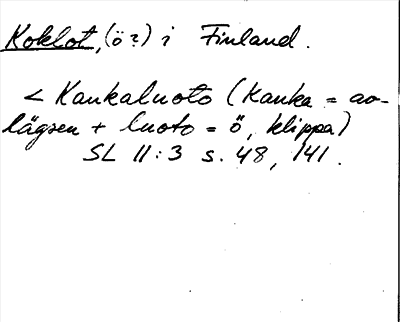 Koklot, (ö?) i Finland.
< Kaukaluoto (Kauka = av-
lägsen + luoto = ö, klippa)
SL 11:3 s. 48, 141.